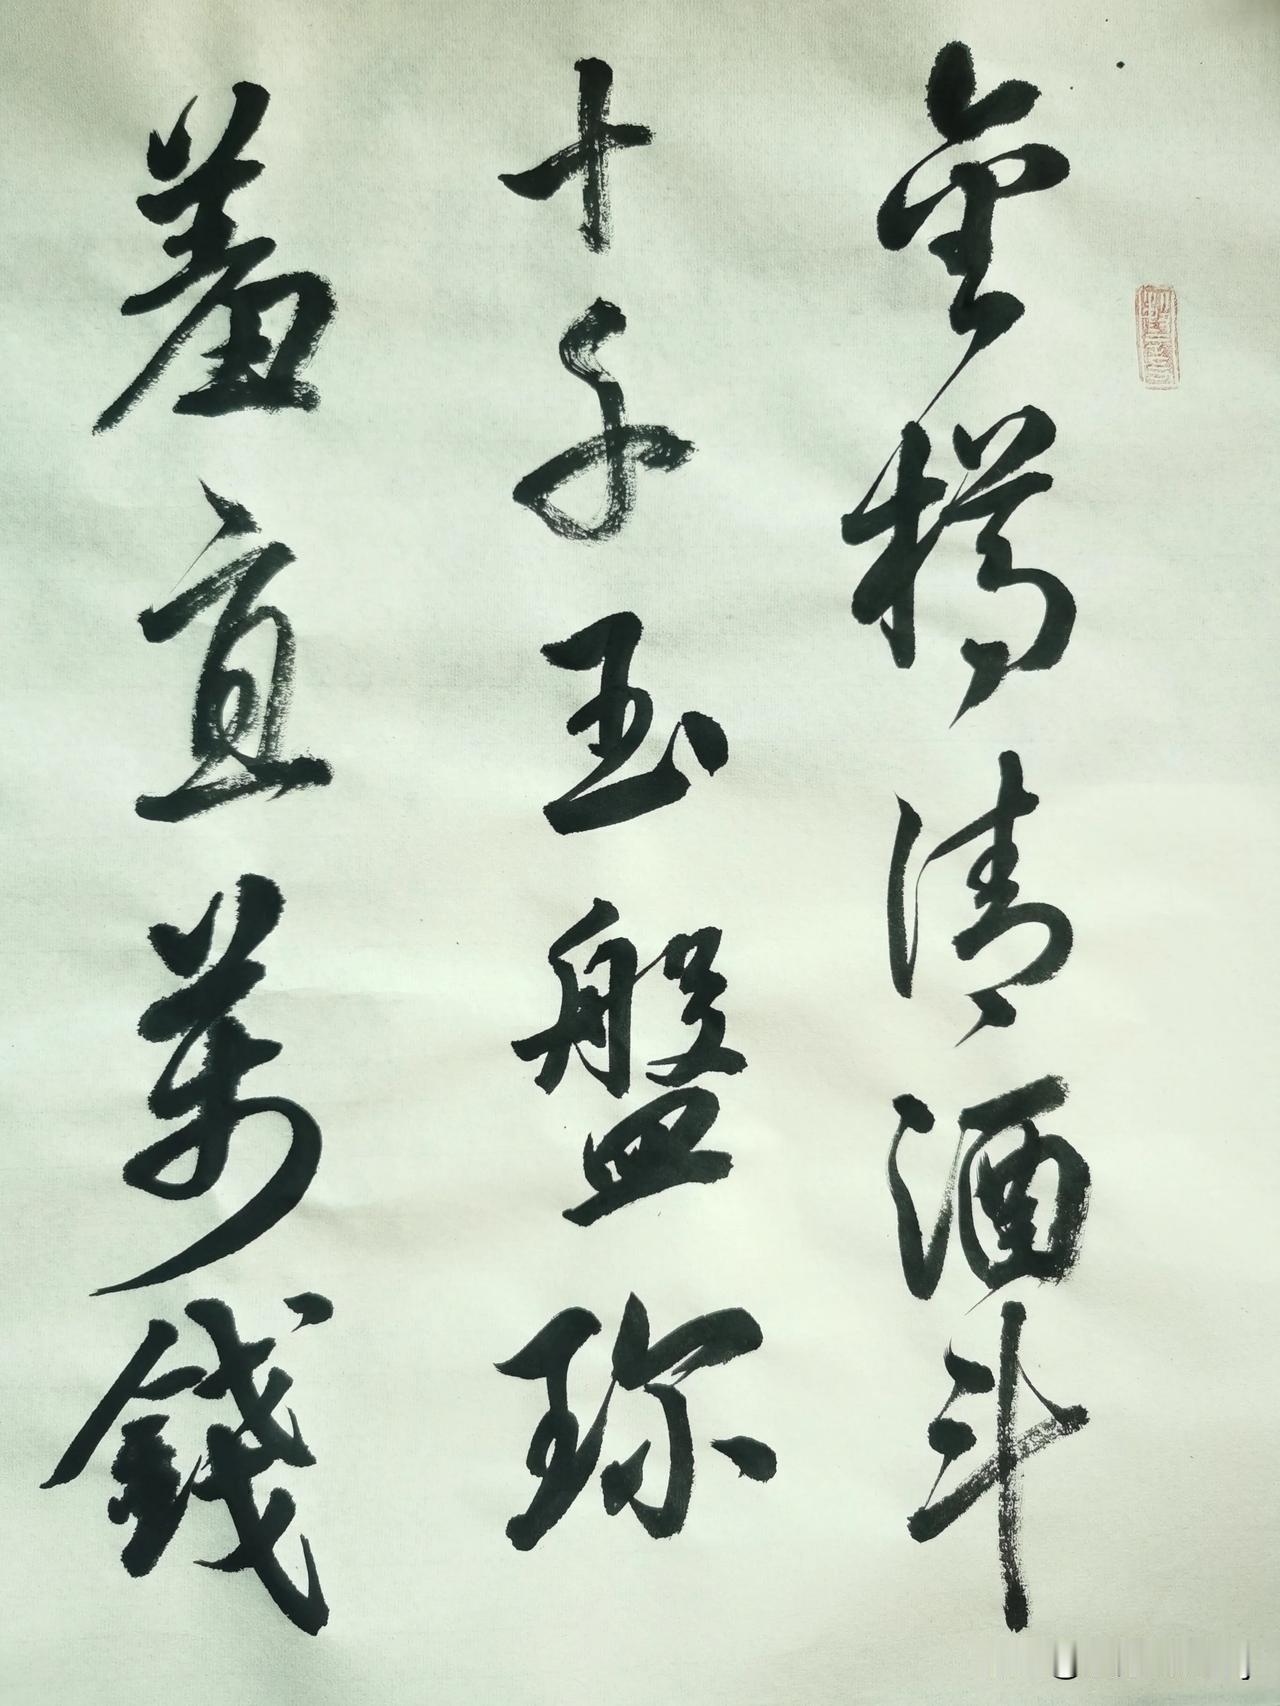 金樽清酒斗
十千玉盤珎
羞直萬錢